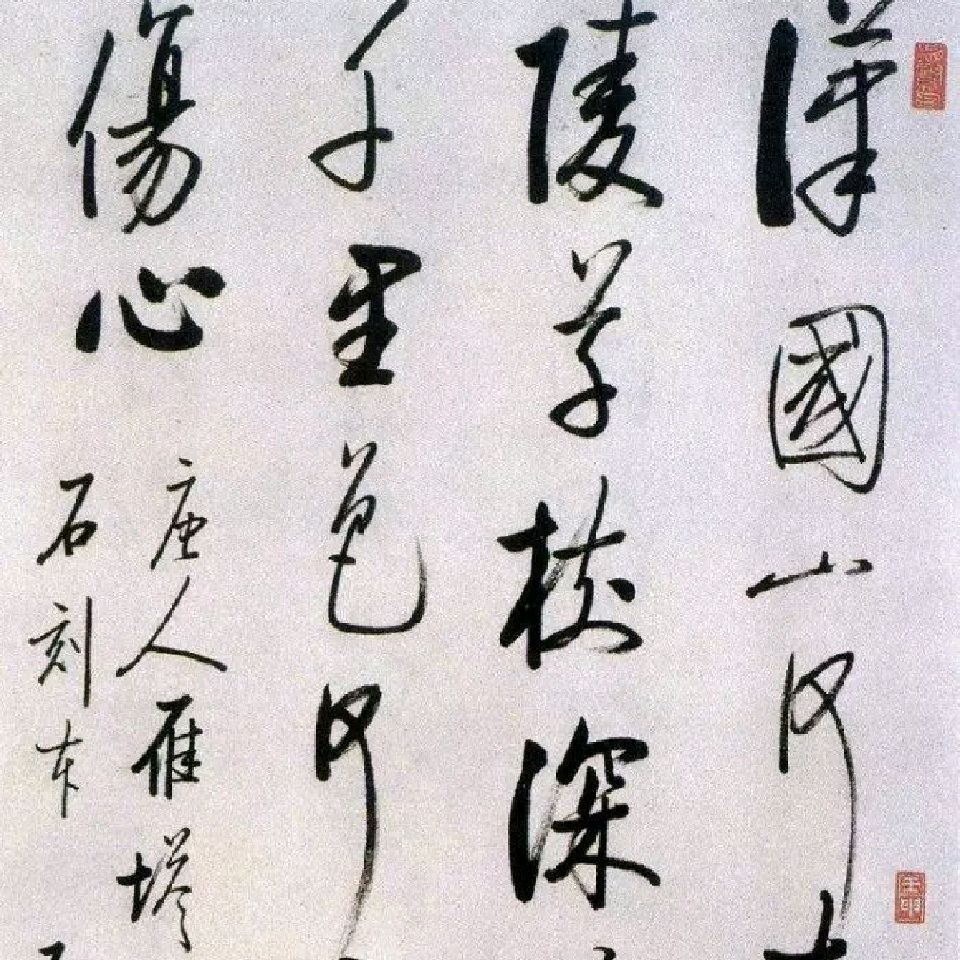 漢國山河
陵草樹深
千里色何
傷心
唐人雁塔
石刻本